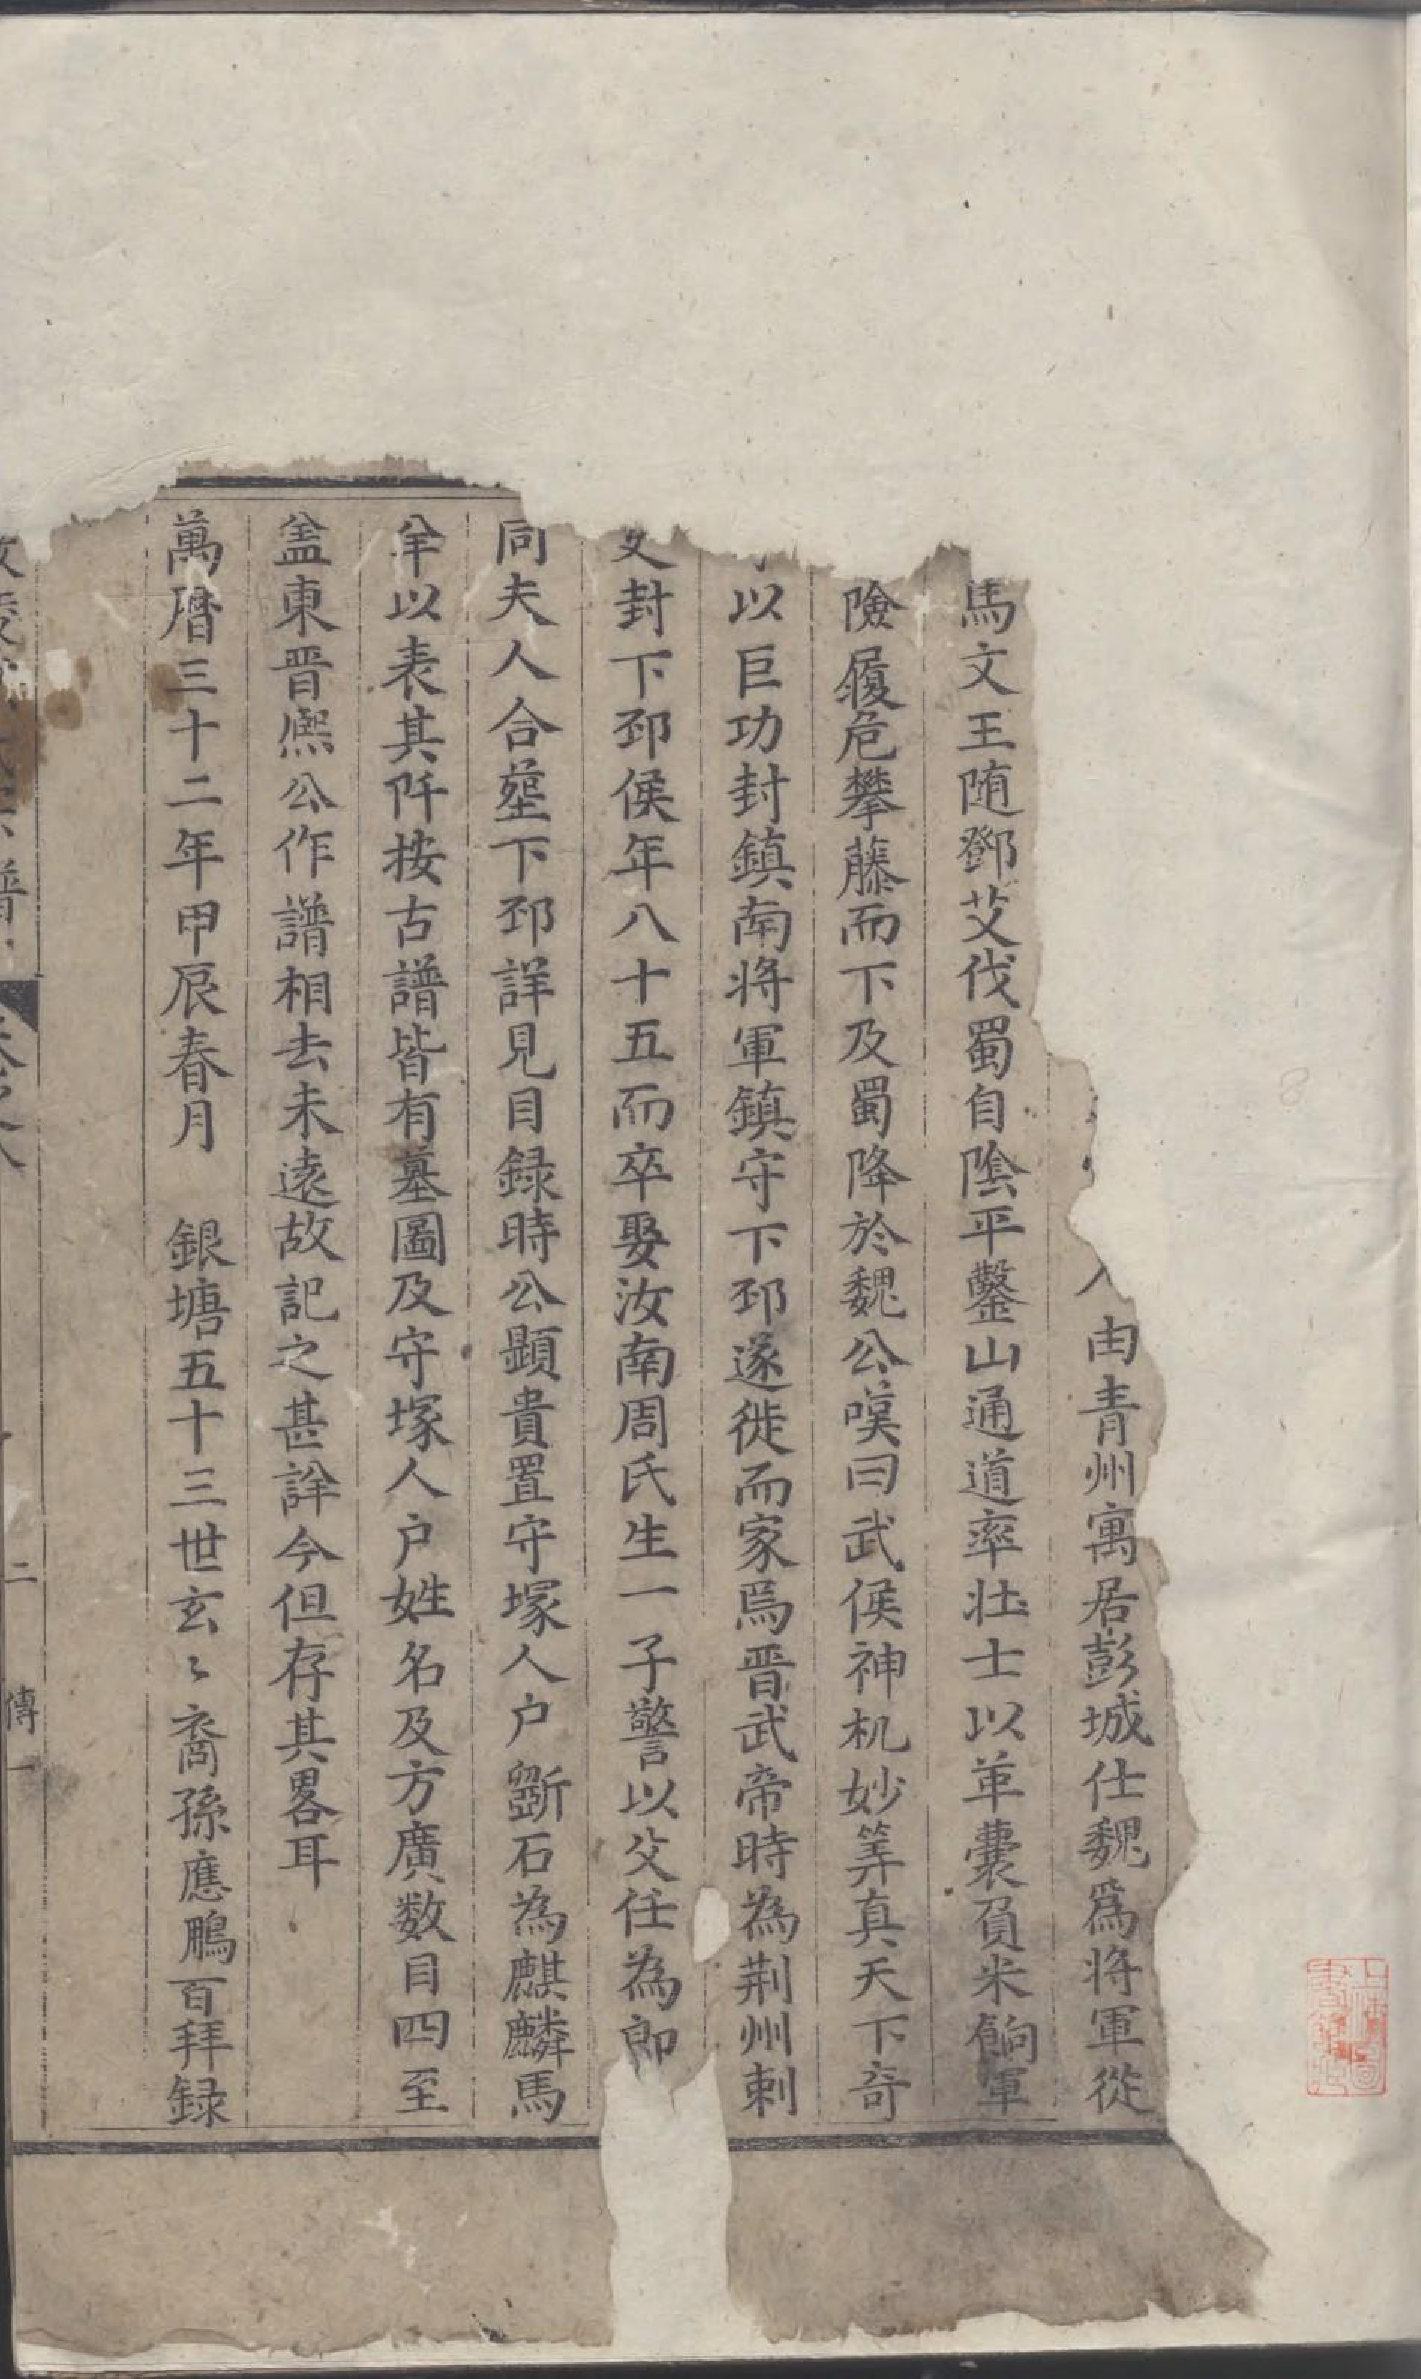 由青州寓居彭城仕魏爲将軍從
馬文王随鄧艾伐蜀自陰平鑿山通道率壮士以革囊負米餉軍
險履危攀藤而下及蜀降於魏公嘆曰武侯神机妙筭真天下奇
以巨功封鎮南将軍鎮守下邳遂徙而家焉晋武帝時為荆州刺
封下邳侯年八十五而卒娶汝南周氏生一子警以父任為郎
同夫人合塟下邳詳見目録時公顕貴置守塚人户斵石為麒麟馬
羊以表其阡按古譜皆有墓圖及守塚人户姓名及方廣数目四至
盖東晋熈公作譜相去未遠故記之甚詳今但存其畧耳
萬曆三十二年甲辰春月 銀塘五十三世玄〻裔孫應鵬百拜録
二 傳一